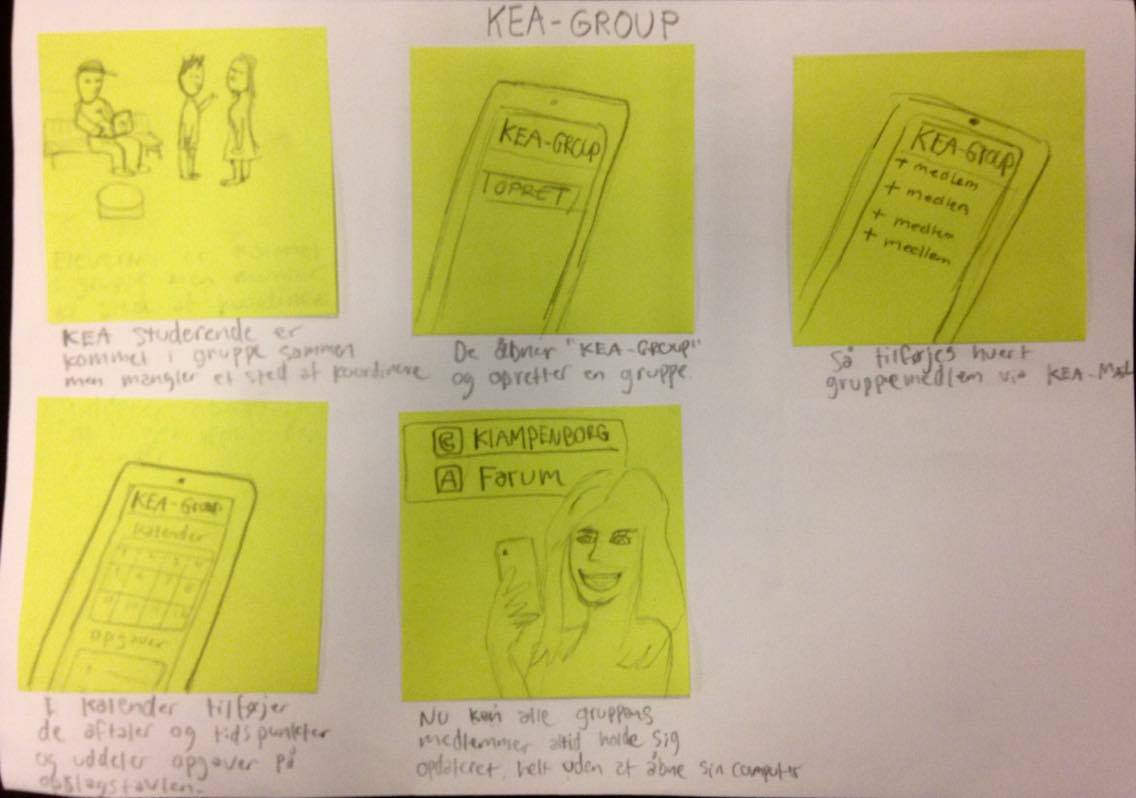 KEA-GROUP
KEA studerende er
kommet i gruppe sammen
men mangler et sted at koordinere
KEA-GROUP
OPRET
De åbner "KEA-GROUP"
og opretter en gruppe.
KEA-GROUP
+ medlem
+ medlem
+ medlem
+ medlem
Så tilføjes hvert
gruppemedlem via KEA-MAIL
KEA-GROUP
Kalender
opgaver
I kalender tilføjer
de aftaler og tidspunkter
og uddeler opgaver på
opslagstavlen.
C KLAMPENBORG
A Forum
Nu kan alle gruppens
medlemmer altid holde sig
opdateret, helt uden at åbne sin computer